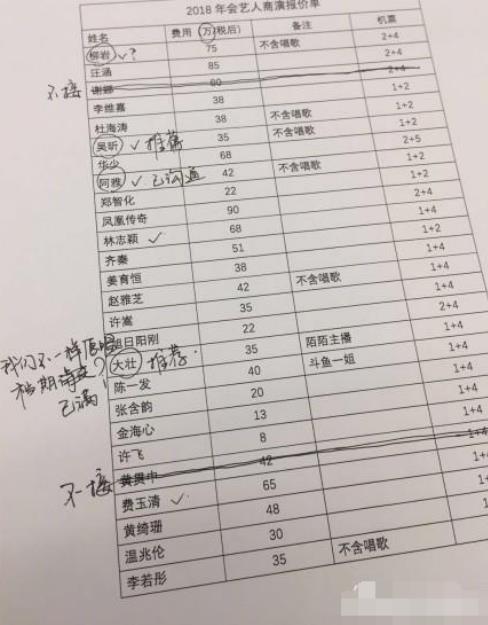 2018年会艺人商演报价单
姓名 费用 万(税后) 备注 机票
柳岩 ✓? 75 不含唱歌 2+4
汪涵 85 2+4
不接 谢娜 80 2+4
李维嘉 38 1+2
杜海涛 38 不含唱歌 1+2
吴昕 ✓推荐 35 不含唱歌 1+2
华少 68 2+5
阿雅 ✓已沟通 42 不含唱歌 1+2
郑智化 22 1+2
凤凰传奇 90 2+4
林志颖 ✓ 68 1+2
齐秦 51 1+2
姜育恒 38 1+2
赵雅芝 42 不含唱歌 1+4
许嵩 35 1+2
旭日阳刚 22 2+4
我们不一样原唱
大壮 推荐 35 陌陌主播 1+4
档期
已满
陈一发 40 斗鱼一姐 1+4
张含韵 20 1+4
金海心 13 1+4
许飞 8 1+4
不接 黄贯中 42 1+4
费玉清 ✓ 65 1+4
黄绮珊 48
温兆伦 30
李若彤 35 不含唱歌